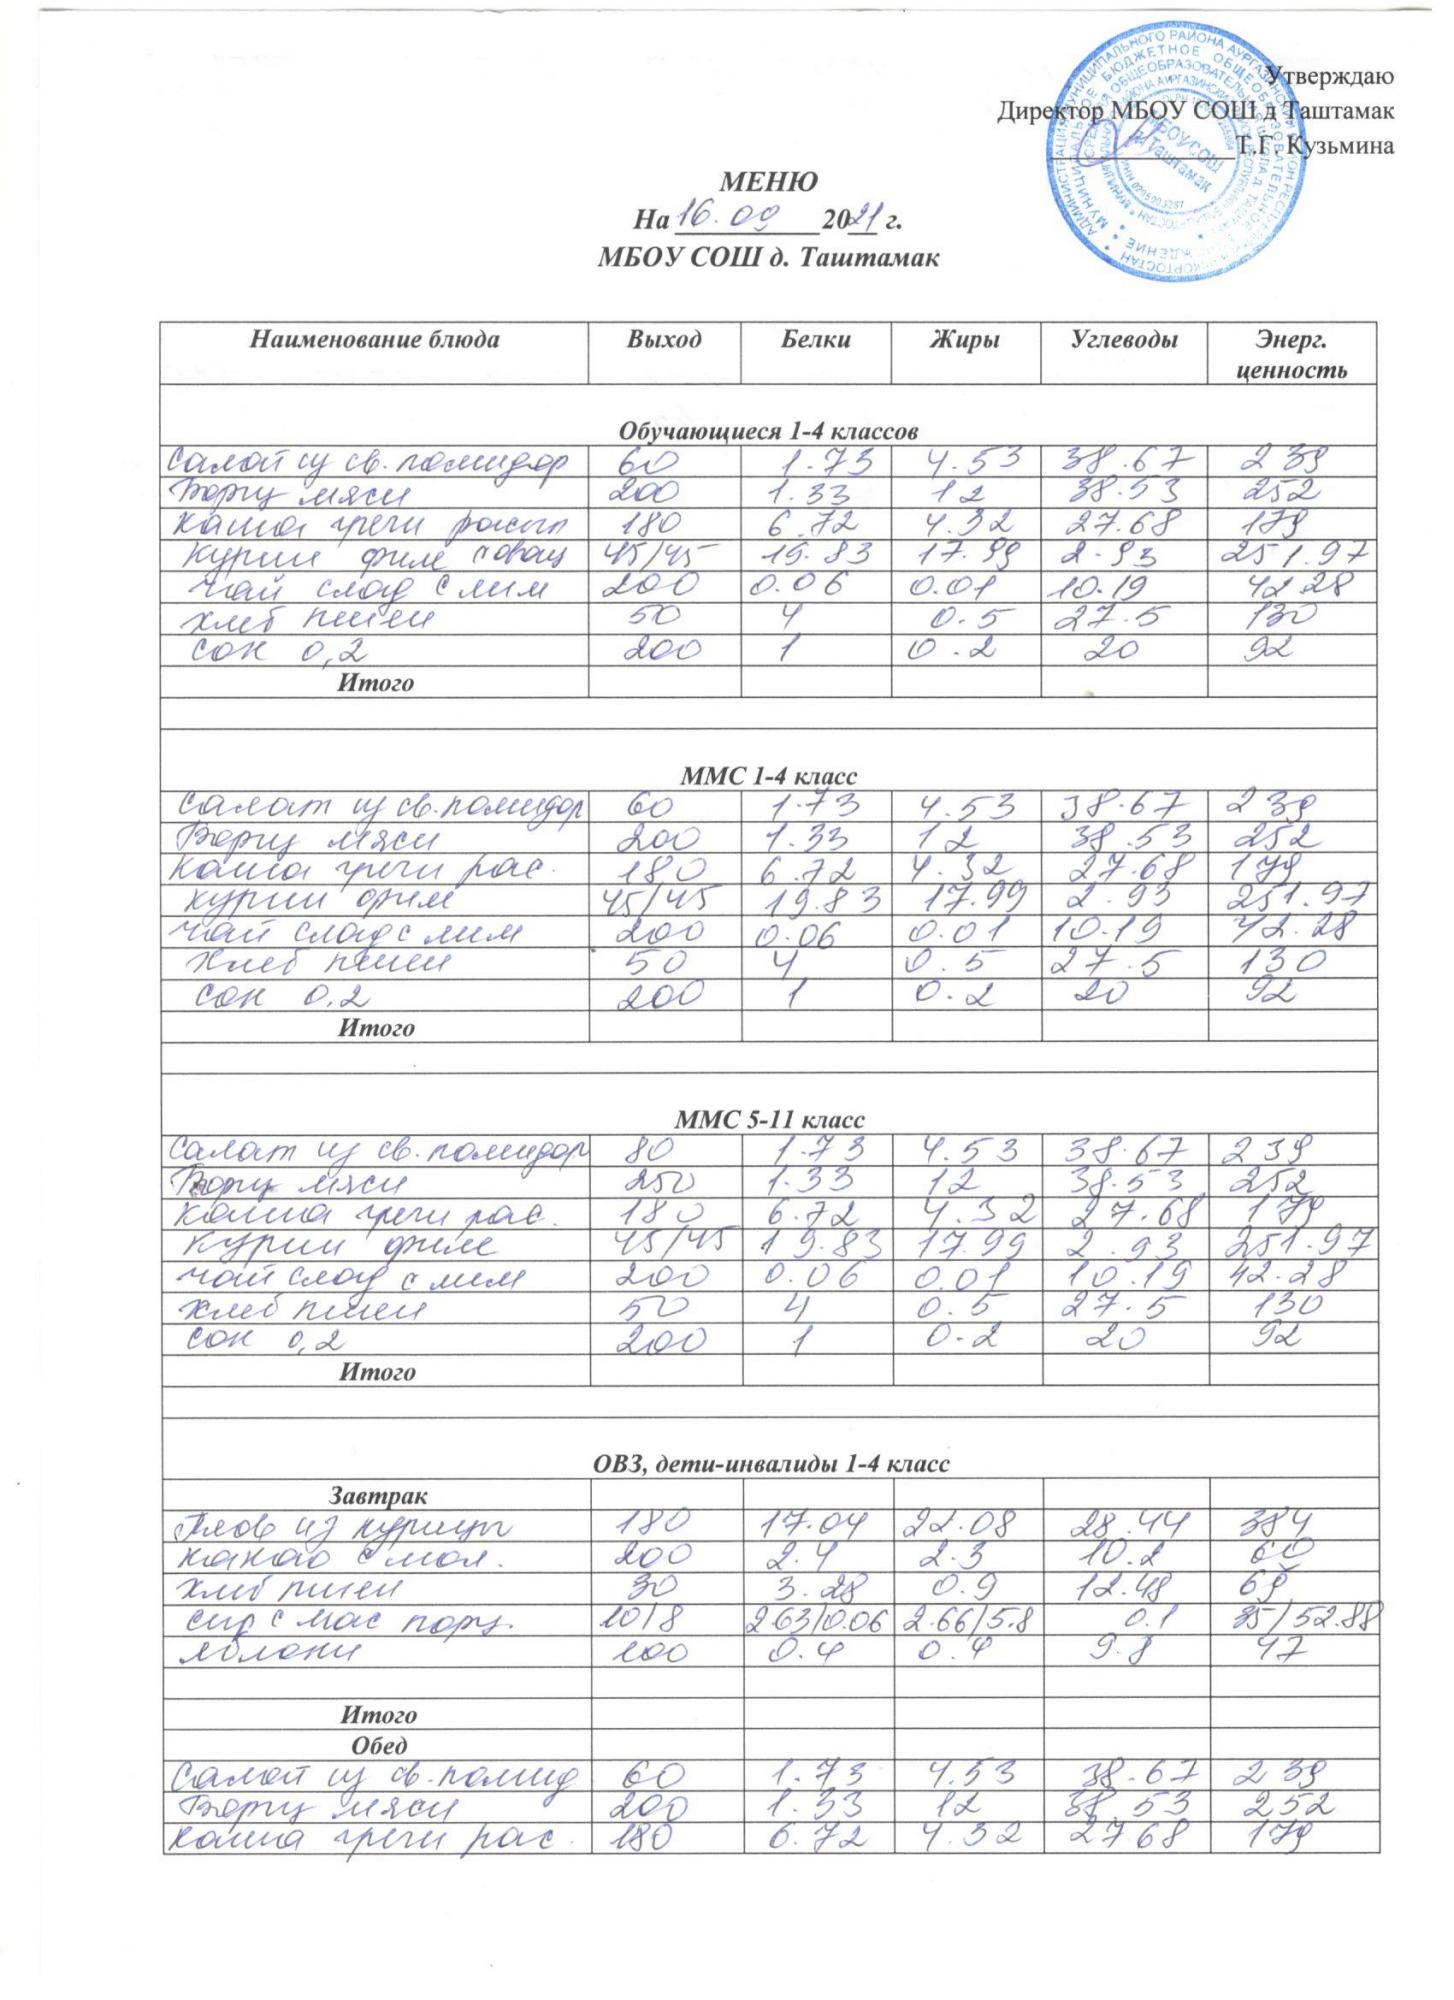 Утверждаю
Директор МБОУ СОШ д Таштамак
Т.Г. Кузьмина
МЕНЮ
На 16.09 2021 г.
МБОУ СОШ д. Таштамак
Наименование блюда Выход Белки Жиры Углеводы Энерг. ценность
Обучающиеся 1-4 классов
Салат из св. помидор 60 1.73 4.53 38.67 239
Борщ мясн 200 1.33 12 38.53 252
Каша гречн рассып 180 6.72 4.32 27.68 179
Курин филе с овощ 45/45 19.83 17.99 2.93 251.97
Чай слад с лим 200 0.06 0.01 10.19 42.28
Хлеб пшен 50 4 0.5 27.5 130
Сок 0,2 200 1 0.2 20 92
Итого
ММС 1-4 класс
Салат из св. помидор 60 1.73 4.53 38.67 239
Борщ мясн 200 1.33 12 38.53 252
Каша гречн рас. 180 6.72 4.32 27.68 179
Курин филе 45/45 19.83 17.99 2.93 251.97
Чай слад с лим 200 0.06 0.01 10.19 42.28
Хлеб пшен 50 4 0.5 27.5 130
Сок 0.2 200 1 0.2 20 92
Итого
ММС 5-11 класс
Салат из св. помидор 80 1.73 4.53 38.67 239
Борщ мясн 250 1.33 12 38.53 252
Каша гречн рас. 180 6.72 4.32 27.68 179
Курин филе 45/45 19.83 17.99 2.93 251.97
Чай слад с лим 200 0.06 0.01 10.19 42.28
Хлеб пшен 50 4 0.5 27.5 130
Сок 0,2 200 1 0.2 20 92
Итого
ОВЗ, дети-инвалиды 1-4 класс
Завтрак
Плов из курицы 180 17.04 22.08 28.44 384
Какао с мол. 200 2.4 2.3 10.2 60
Хлеб пшен 30 3.28 0.9 12.48 69
Сыр с мас порц. 10/8 2.63/0.06 2.66/5.8 0.1 35/52.88
Яблоки 100 0.4 0.4 9.8 47
Итого
Обед
Салат из св. помид 60 1.73 4.53 38.67 239
Борщ мясн 200 1.33 12 38.53 252
Каша гречн рас. 180 6.72 4.32 27.68 179